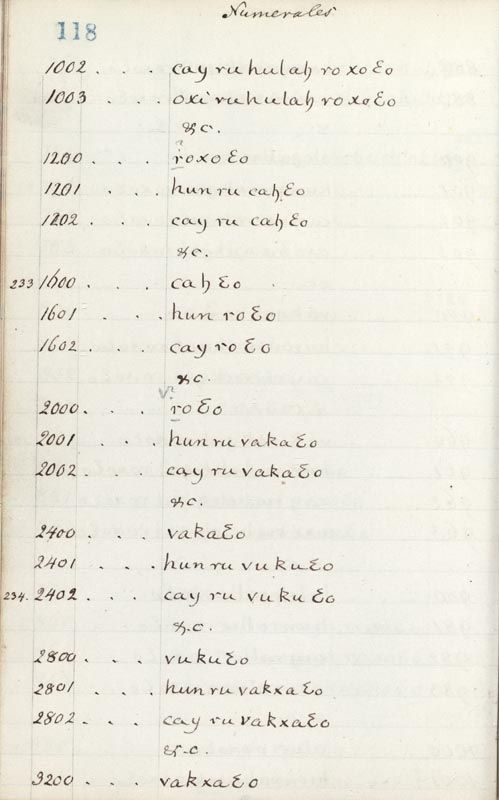 Numerales
118
1002 . . . cay ru hulaɧ ro xo Ɛo
1003 . . . oxi ru hulaɧ ro xo Ɛo
&c.
?
1200 . . . roxo Ɛo
1201 . . . hun ru caɧ Ɛo
1202 . . . cay ru caɧ Ɛo
&c.
233 1600 . . . caɧ Ɛo
1601 . . . hun ro Ɛo
1602 . . . cay ro Ɛo
&c.
2000 . . . ro Ɛo
2001 . . . hun ru vaka Ɛo
2002 . . . cay ru vaka Ɛo
&c.
2400 . . . vaka Ɛo
2401 . . . hun ru vuku Ɛo
234. 2402 . . . cay ru vuku Ɛo
&.c.
2800 . . . vuku Ɛo
2801 . . . hun ru vakxa Ɛo
2802 . . . cay ru vakxa Ɛo
&.c.
3200 . . . vakxa Ɛo